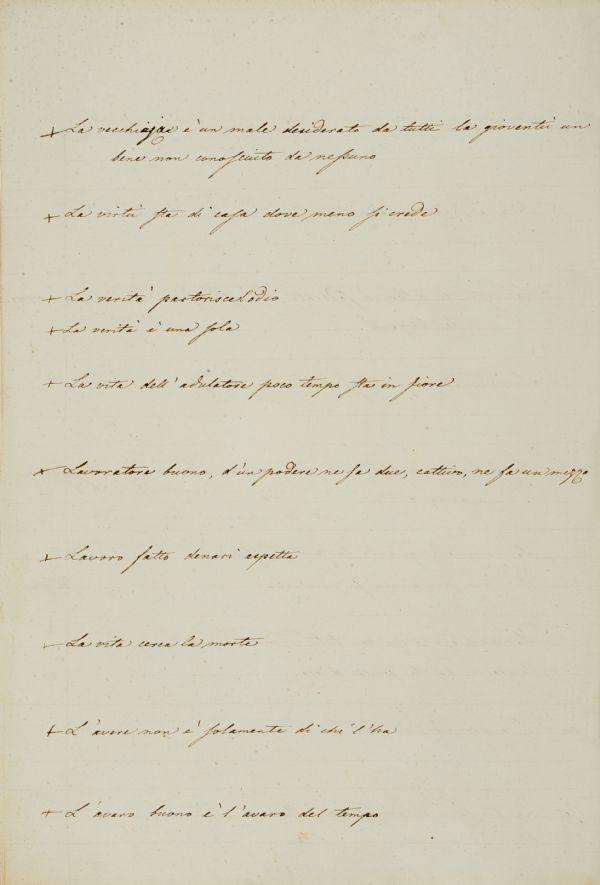 + La vecchiaja è un male desiderato da tutti la gioventù un
bene non conosciuto da nessuno
+ La virtù sta di casa dove meno si crede
+ La verità partorisce l'odio
+ La verità è una sola
+ La vita dell'adulatore poco tempo sta in fiore
+ Lavoratore buono, d'un podere ne fa due, cattivo, ne fa un mezzo
+ Lavoro fatto denari aspetta
+ La vita cerca la morte
+ L'avere non è solamente di chi l'ha
+ L'avaro buono è l'avaro del tempo